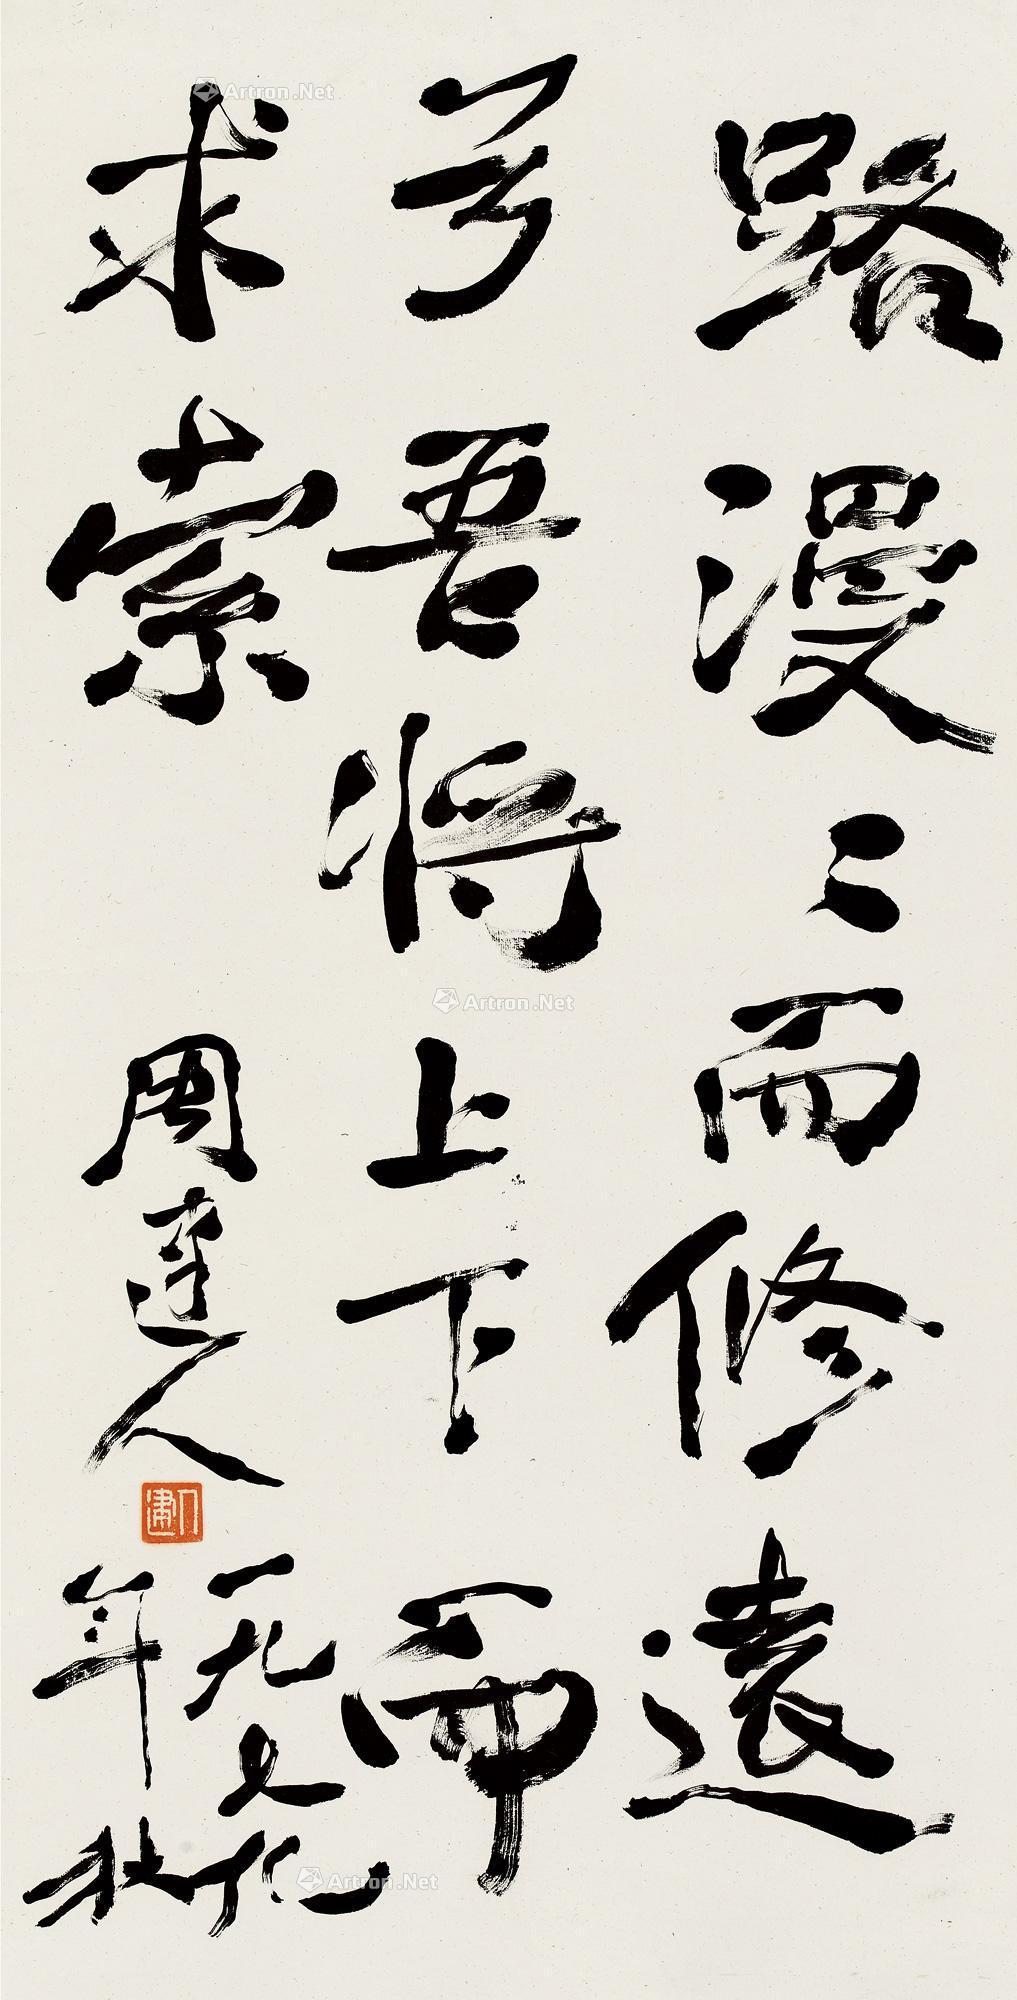 路漫〻而修遠
兮吾将上下而
求索
周建人
一九七九
年秋
Artron.Net
Artron.Net
Artron.Net